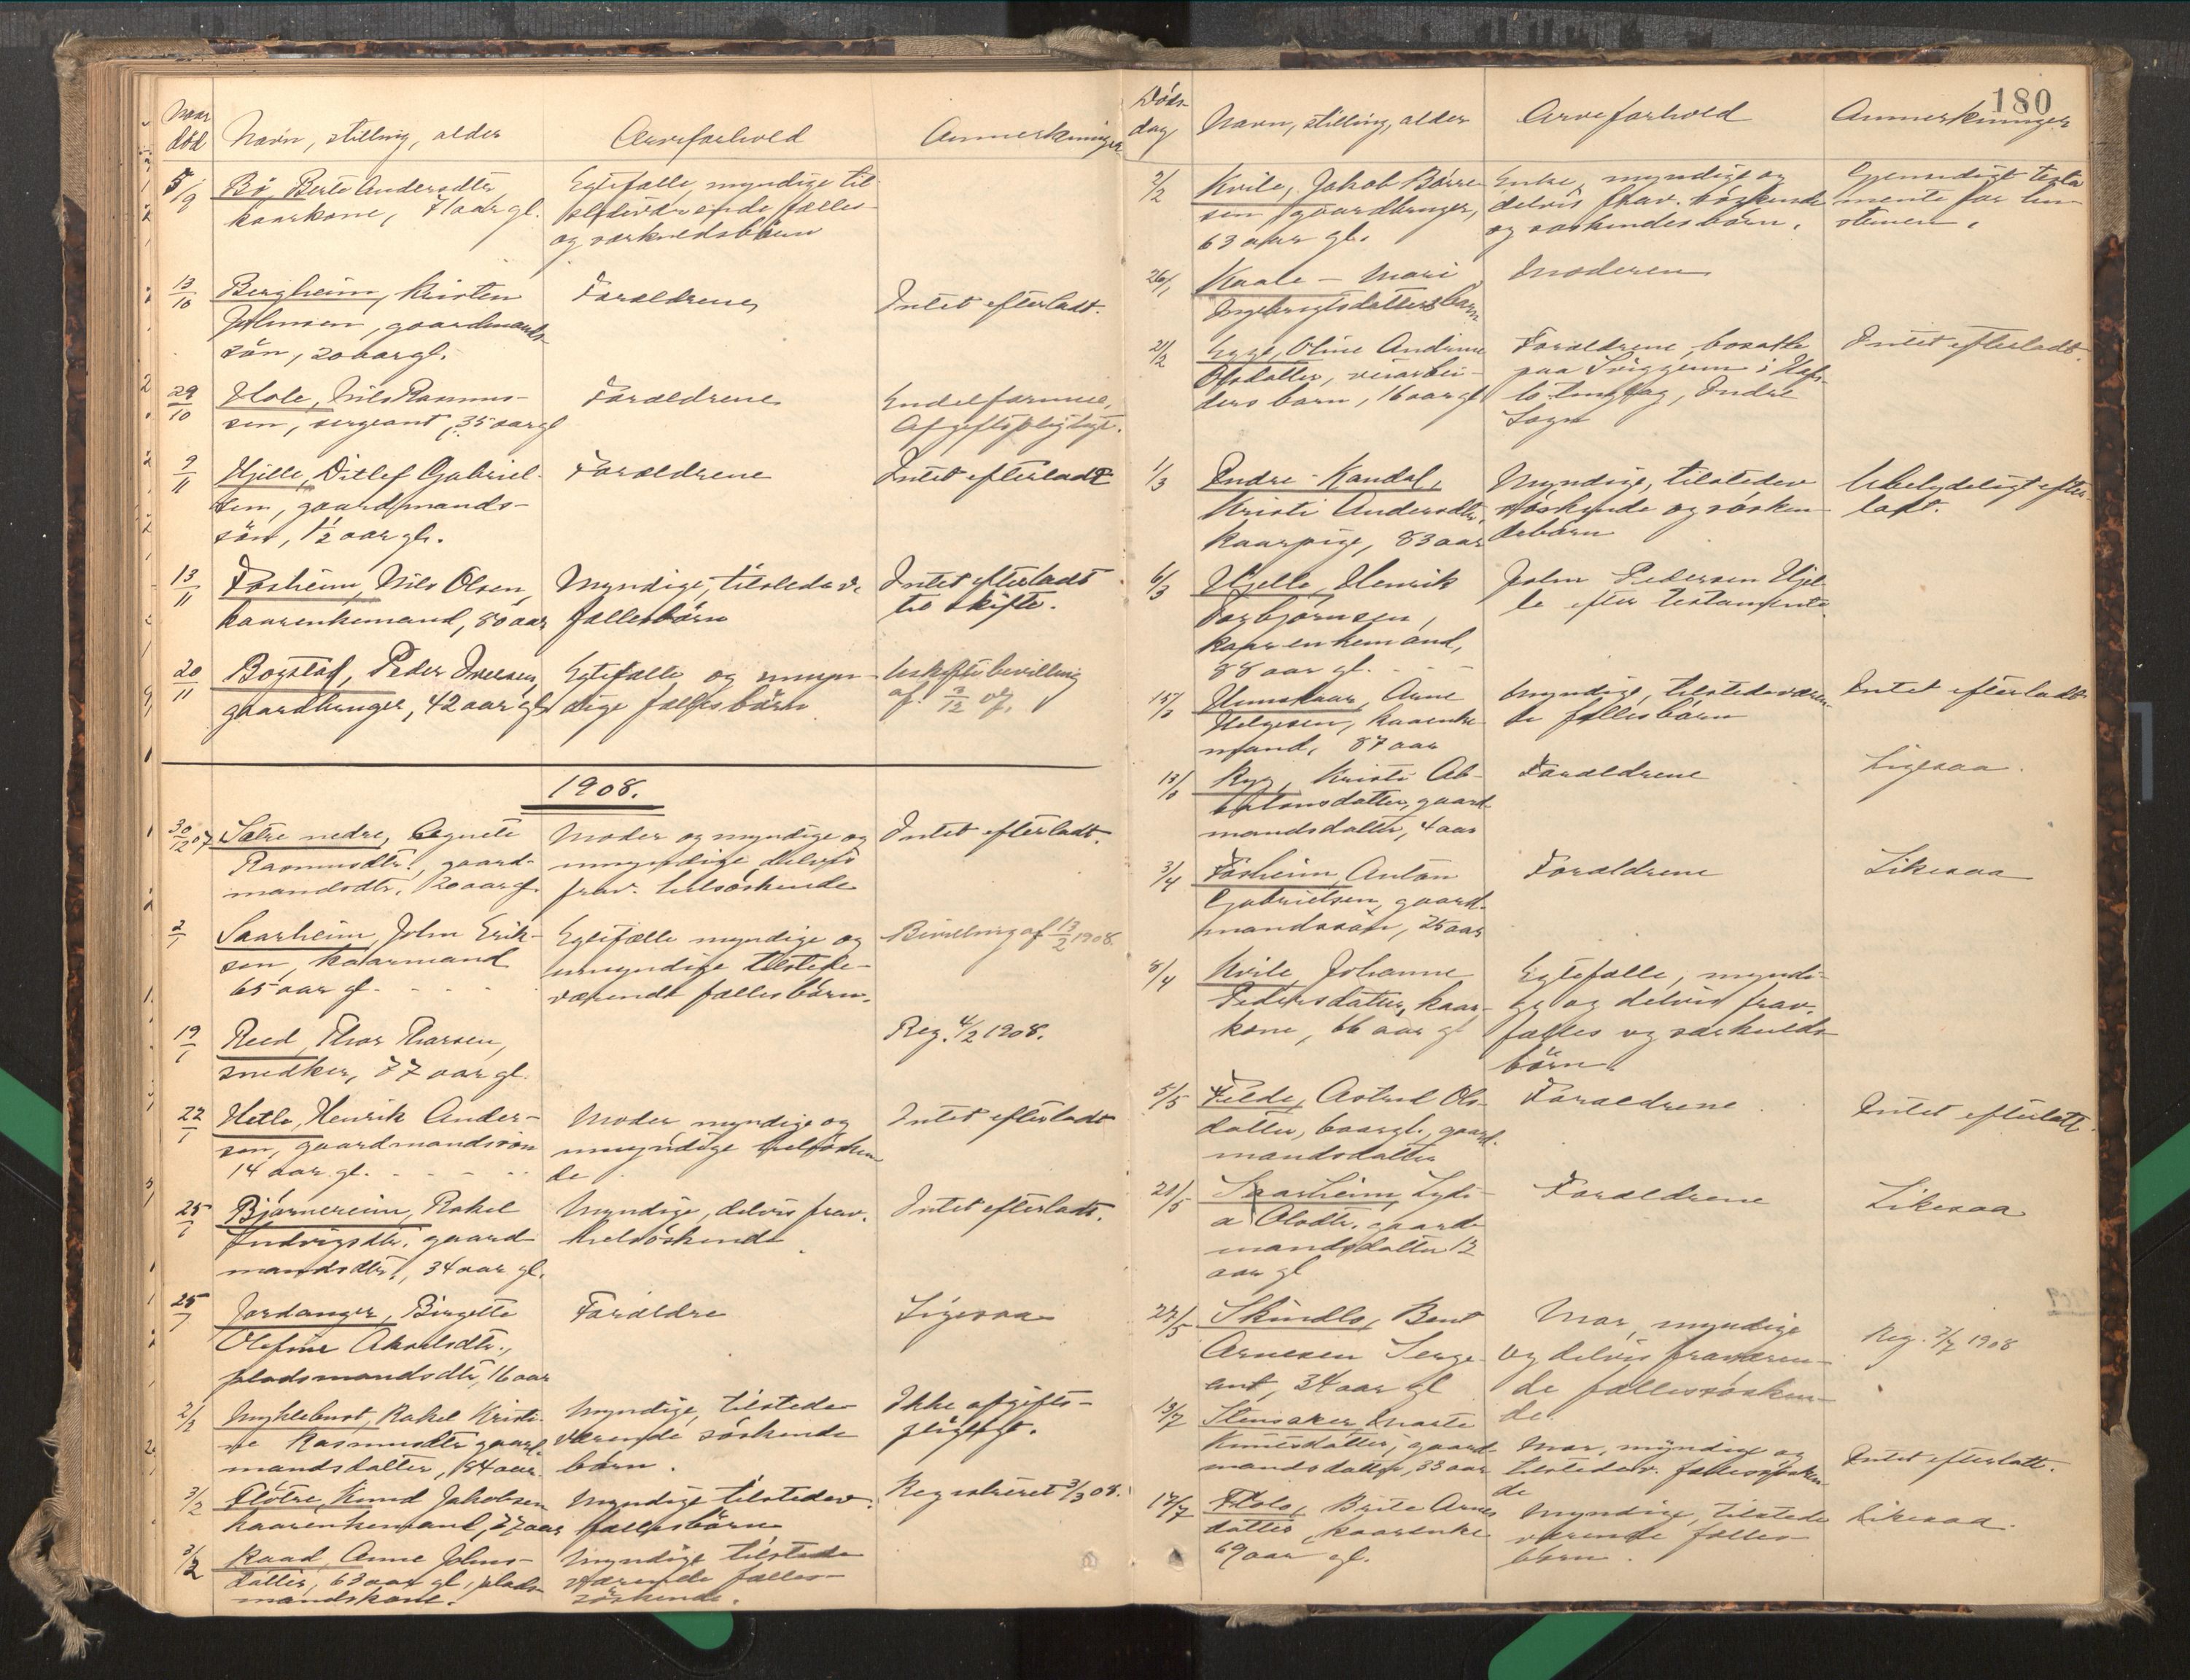 Naar død
Navn, stilling, alder
Arveforhold
Anmerkninger
5/9
Bö, Berte Andersdtr,
kaarkone, 71 aar gl.
Egtefælle, myndige til-
stedeværende fælles-
og særkuldsbörn
13/10
Bergheim, Kristen
Johnsen, gaardmands-
sön, 20 aar gl.
Forældrene
Intet efterladt.
29/10
Hole, Nils Rasmus-
sen, sergeant, 35 aar gl
Forældrene
Endel formue,
Afgiftspligtigt.
9/11
Hjelle, Ditlef Gabriel-
sen, gaardmands-
sön, 1/2 aar gl.
Forældrene
Intet efterladt
13/11
Fosheim, Nils Olsen,
kaarenkemand, 80 aar
Myndige, tilstedev.
fællesbörn
Intet efterladt
til skifte.
20/11
Bogstad, Peder Iversen,
gaardbruger, 42 aar gl.
Egtefælle og umyn-
dige fællesbörn
Uskiftebevilling
af 3/12 07.
1908.
30/12 07
Sætre nedre, Agnete
Rasmusdtr., gaard-
mandsdtr. 20 aar gl.
Moder og myndige og
umyndige delvis
frav. helsöskende
Intet efterladt.
2/1
Saarheim, John Erik-
sen, kaarmand
65 aar gl. - - -
Egtefælle myndige og
umyndige tilstede-
værende fællesbörn.
Bevilling af 13/2 1908.
19/1
Reed, Thor Thorsen,
snedker, 77 aar gl.
Reg. 4/2 1908.
22/1
Hetle, Henrik Ander-
sen, gaardmandssön
14 aar gl. - - -
Moder myndige og
umyndige helsösken
de
Intet efterladt
25/1
Bjørnereim, Rakel
Ludvigsdtr. gaard
mandsdtr., 34 aar gl.
Myndige, delvis frav.
helsöskende
Intet efterladt.
25/1
Jordanger, Birgitte
Olefine Akselsdtr.,
pladsmandsdtr, 16 aar
Forældre
Ligesaa
2/2
Myklebust, Rakel Kristi-
ne Rasmusdtr gaard-
mandsdatter, 84 aar
Myndige, tilstede
værende söskende
börn.
Ikke afgifts-
pligtigt.
3/2
Flötre, Knud Jakobsen
kaarenkemand, 77 aar
Myndige tilstedev.
fællesbörn
Registreret 3/3 08.
3/2
Raad, Anne Johns-
datter, 63 aar gl, plads-
mandskone.
Myndige tilstede
værende fælles-
söskende.
180
Döds-
dag
Navn, stilling, alder
Arveforhold
Anmerkninger
2/2
Kvile, Jakob Börre-
sen gaardbruger,
63 aar gl.
Enke, myndige og
delvis frav. söskende
og söskendesbörn.
Gjensidigt testa
mente for en-
stemen.
26/1
Kaale - Mari
Ingebrigtsdatters barn
Moderen
21/2
Egge, Oline Andrine
Olsdatter, veiarbei-
ders barn, 16 aar gl
Forældrene, bosatte
paa Sviggum i Haf-
slo tinglag, Indre
Sogn
Intet efterladt.
1/3
Indre-Kandal,
Kristi Andersdtr,
kaarpige, 83 aar
Myndige, tilstedev
söskende og sösken
debörn
Ubetydeligt efter-
ladt.
6/3
Hjelle, Henrik
Torbjörnsen,
kaarenkemand,
88 aar gl. - - -
John Pedersen Hjel-
le efter testamente
15/3
Hunskaar, Arne
Helgesen, kaarenke-
mand, 87 aar
Myndige, tilstedeværen-
de fællesbörn
Intet efterladt
13/3
Ryg, Kristi Ab-
salonsdatter, gaard-
mandsdatter, 4 aar
Forældrene
Ligesaa.
3/4
Fosheim, Anton
Gabrielsen, gaard-
mandssön, 25 aar
Forældrene
Likesaa
8/4
Kvile, Johanne
Pedersdatter, kaar-
kone, 66 aar gl
Egtefælle, myndi-
ge og delvis frav.
fælles og særkulds
börn.
5/5
Felde, Astrid Ols-
datter, 6 aar gl., gaard-
mandsdatter
Forældrene
Intet efterlatt.
21/5
Saarheim, Lydi-
a Olsdtr. gaard-
mandsdatter 12
aar gl
Forældrene
Likesaa
24/5
Skinlo, Bent
Arnesen Serge-
ant, 34 aar gl
Mor, myndige
og delvis fraværen-
de fællessösken-
de.
Reg. 2/7 1908
13/7
Stensaker, Marte
Knutsdatter, gaard-
mandsdatter, 33 aar
Mor, myndige og
tilstedev. fællessösken-
de
Intet efterlatt.
17/7
Flolo, Brite Arnes
datter, kaarenke
69 aar gl.
Myndige, tilstede
værende fælles-
börn.
Likesaa.